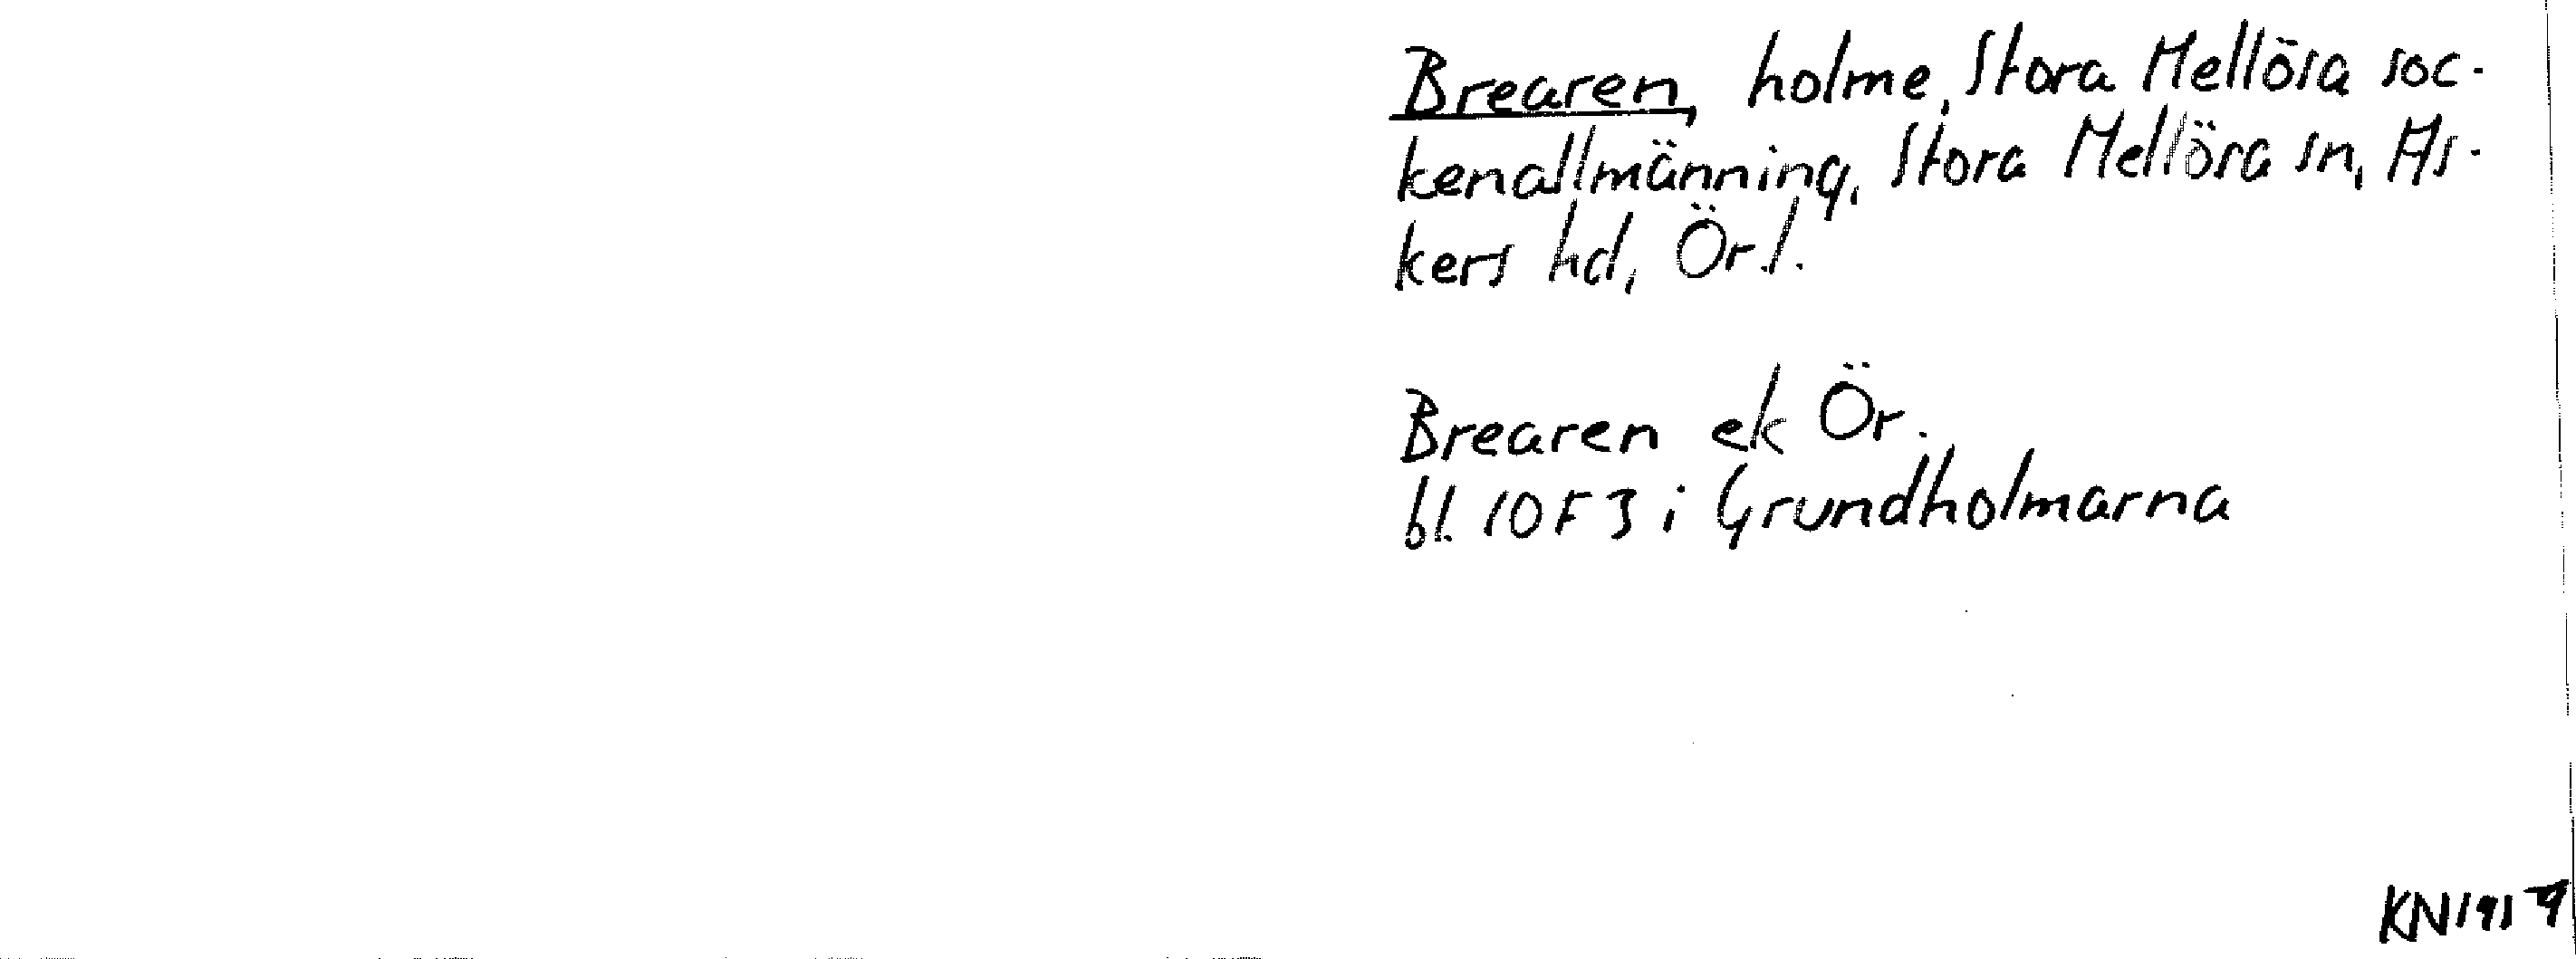 Brearen, holme, Stora Mellösa soc-
kenallmänning, Stora Mellösa sn, As-
kers hd, Ör.l.
Brearen ek Ör.
bl. 10F3 i Grundholmarna